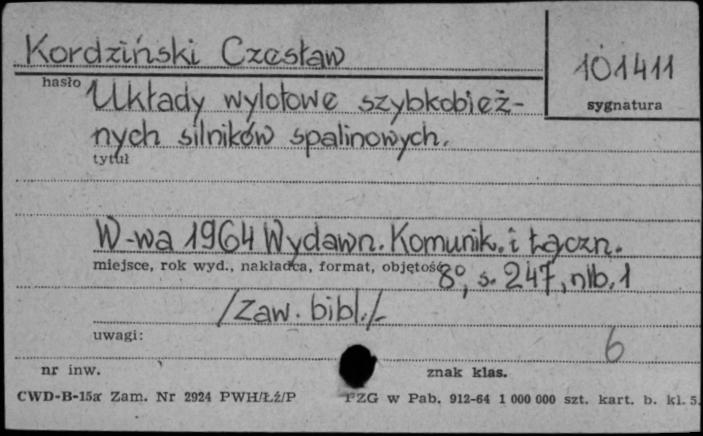 Kordziński Czesław
101411
hasło
sygnatura
Układy wylotowe szybkobież-
nych silników spalinowych.
tytuł
W-wa 1964 Wydawn. Komunik. i Łączn.
miejsce, rok wyd., nakładca, format, objętość
8°, s. 247, nlb. 1
/Zaw. bibl./-
uwagi:
6
nr inw.
znak klas.
CWD-B-15a Zam. Nr 2924 PWH/Łź/P
PZG w Pab. 912-64 1 000 000 szt. kart. b. kl. 5.